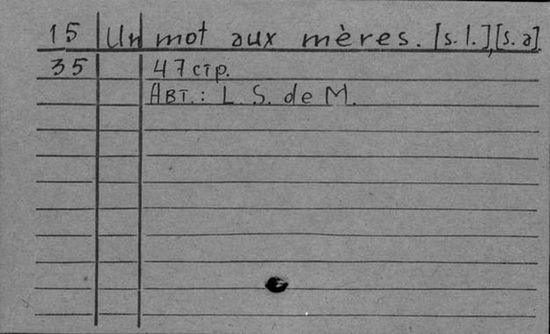 15 Un mot aux mères. [s. l.], [s. a].
35 47 стр.
Авт.: L. S. de M.